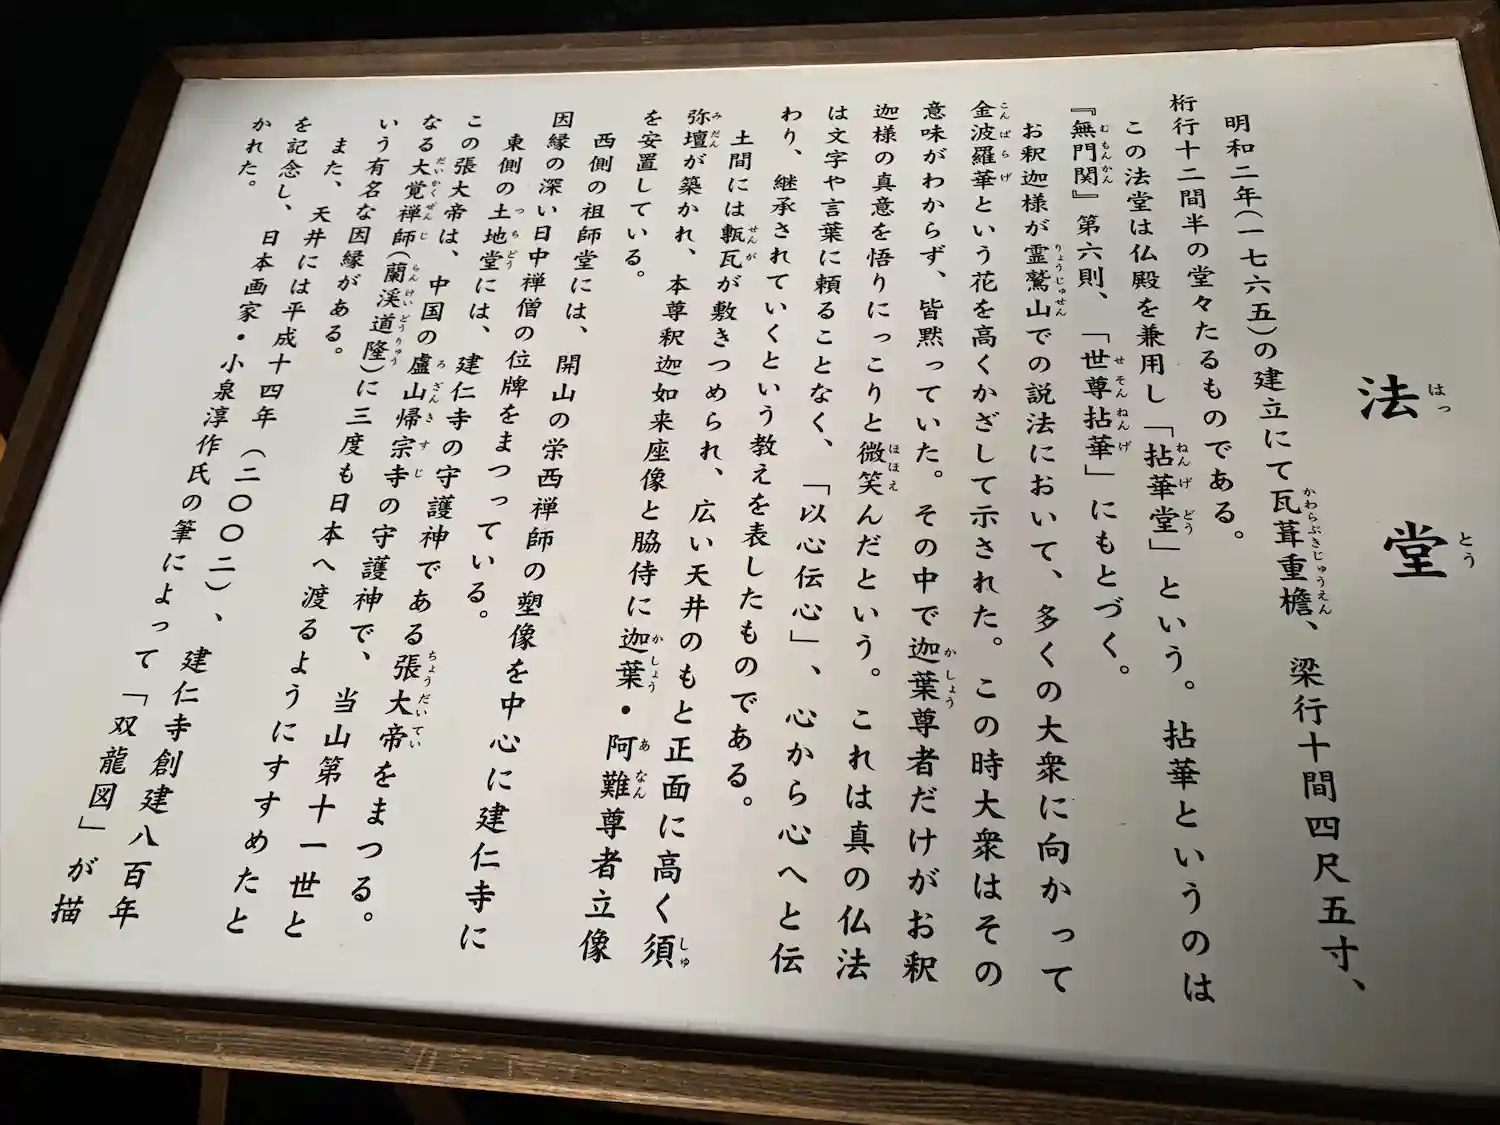 法堂
明和二年（一七六五）の建立にて瓦葺重檐、梁行十間四尺五寸、
桁行十二間半の堂々たるものである。
この法堂は仏殿を兼用し「拈華堂」という。拈華というのは
『無門関』第六則、「世尊拈華」にもとづく。
お釈迦様が霊鷲山での説法において、多くの大衆に向かって
金波羅華という花を高くかざして示された。この時大衆はその
意味がわからず、皆黙っていた。その中で迦葉尊者だけがお釈
迦様の真意を悟りにっこりと微笑んだという。これは真の仏法
は文字や言葉に頼ることなく、「以心伝心」、心から心へと伝
わり、継承されていくという教えを表したものである。
土間には甎瓦が敷きつめられ、広い天井のもと正面に高く須
弥壇が築かれ、本尊釈迦如来座像と脇侍に迦葉・阿難尊者立像
を安置している。
西側の祖師堂には、開山の栄西禅師の塑像を中心に建仁寺に
因縁の深い日中禅僧の位牌をまつっている。
東側の土地堂には、建仁寺の守護神である張大帝をまつる。
この張大帝は、中国の盧山帰宗寺の守護神で、当山第十一世と
なる大覚禅師（蘭渓道隆）に三度も日本へ渡るようにすすめたと
いう有名な因縁がある。
また、天井には平成十四年（二〇〇二）、建仁寺創建八百年
を記念し、日本画家・小泉淳作氏の筆によって「双龍図」が描
かれた。